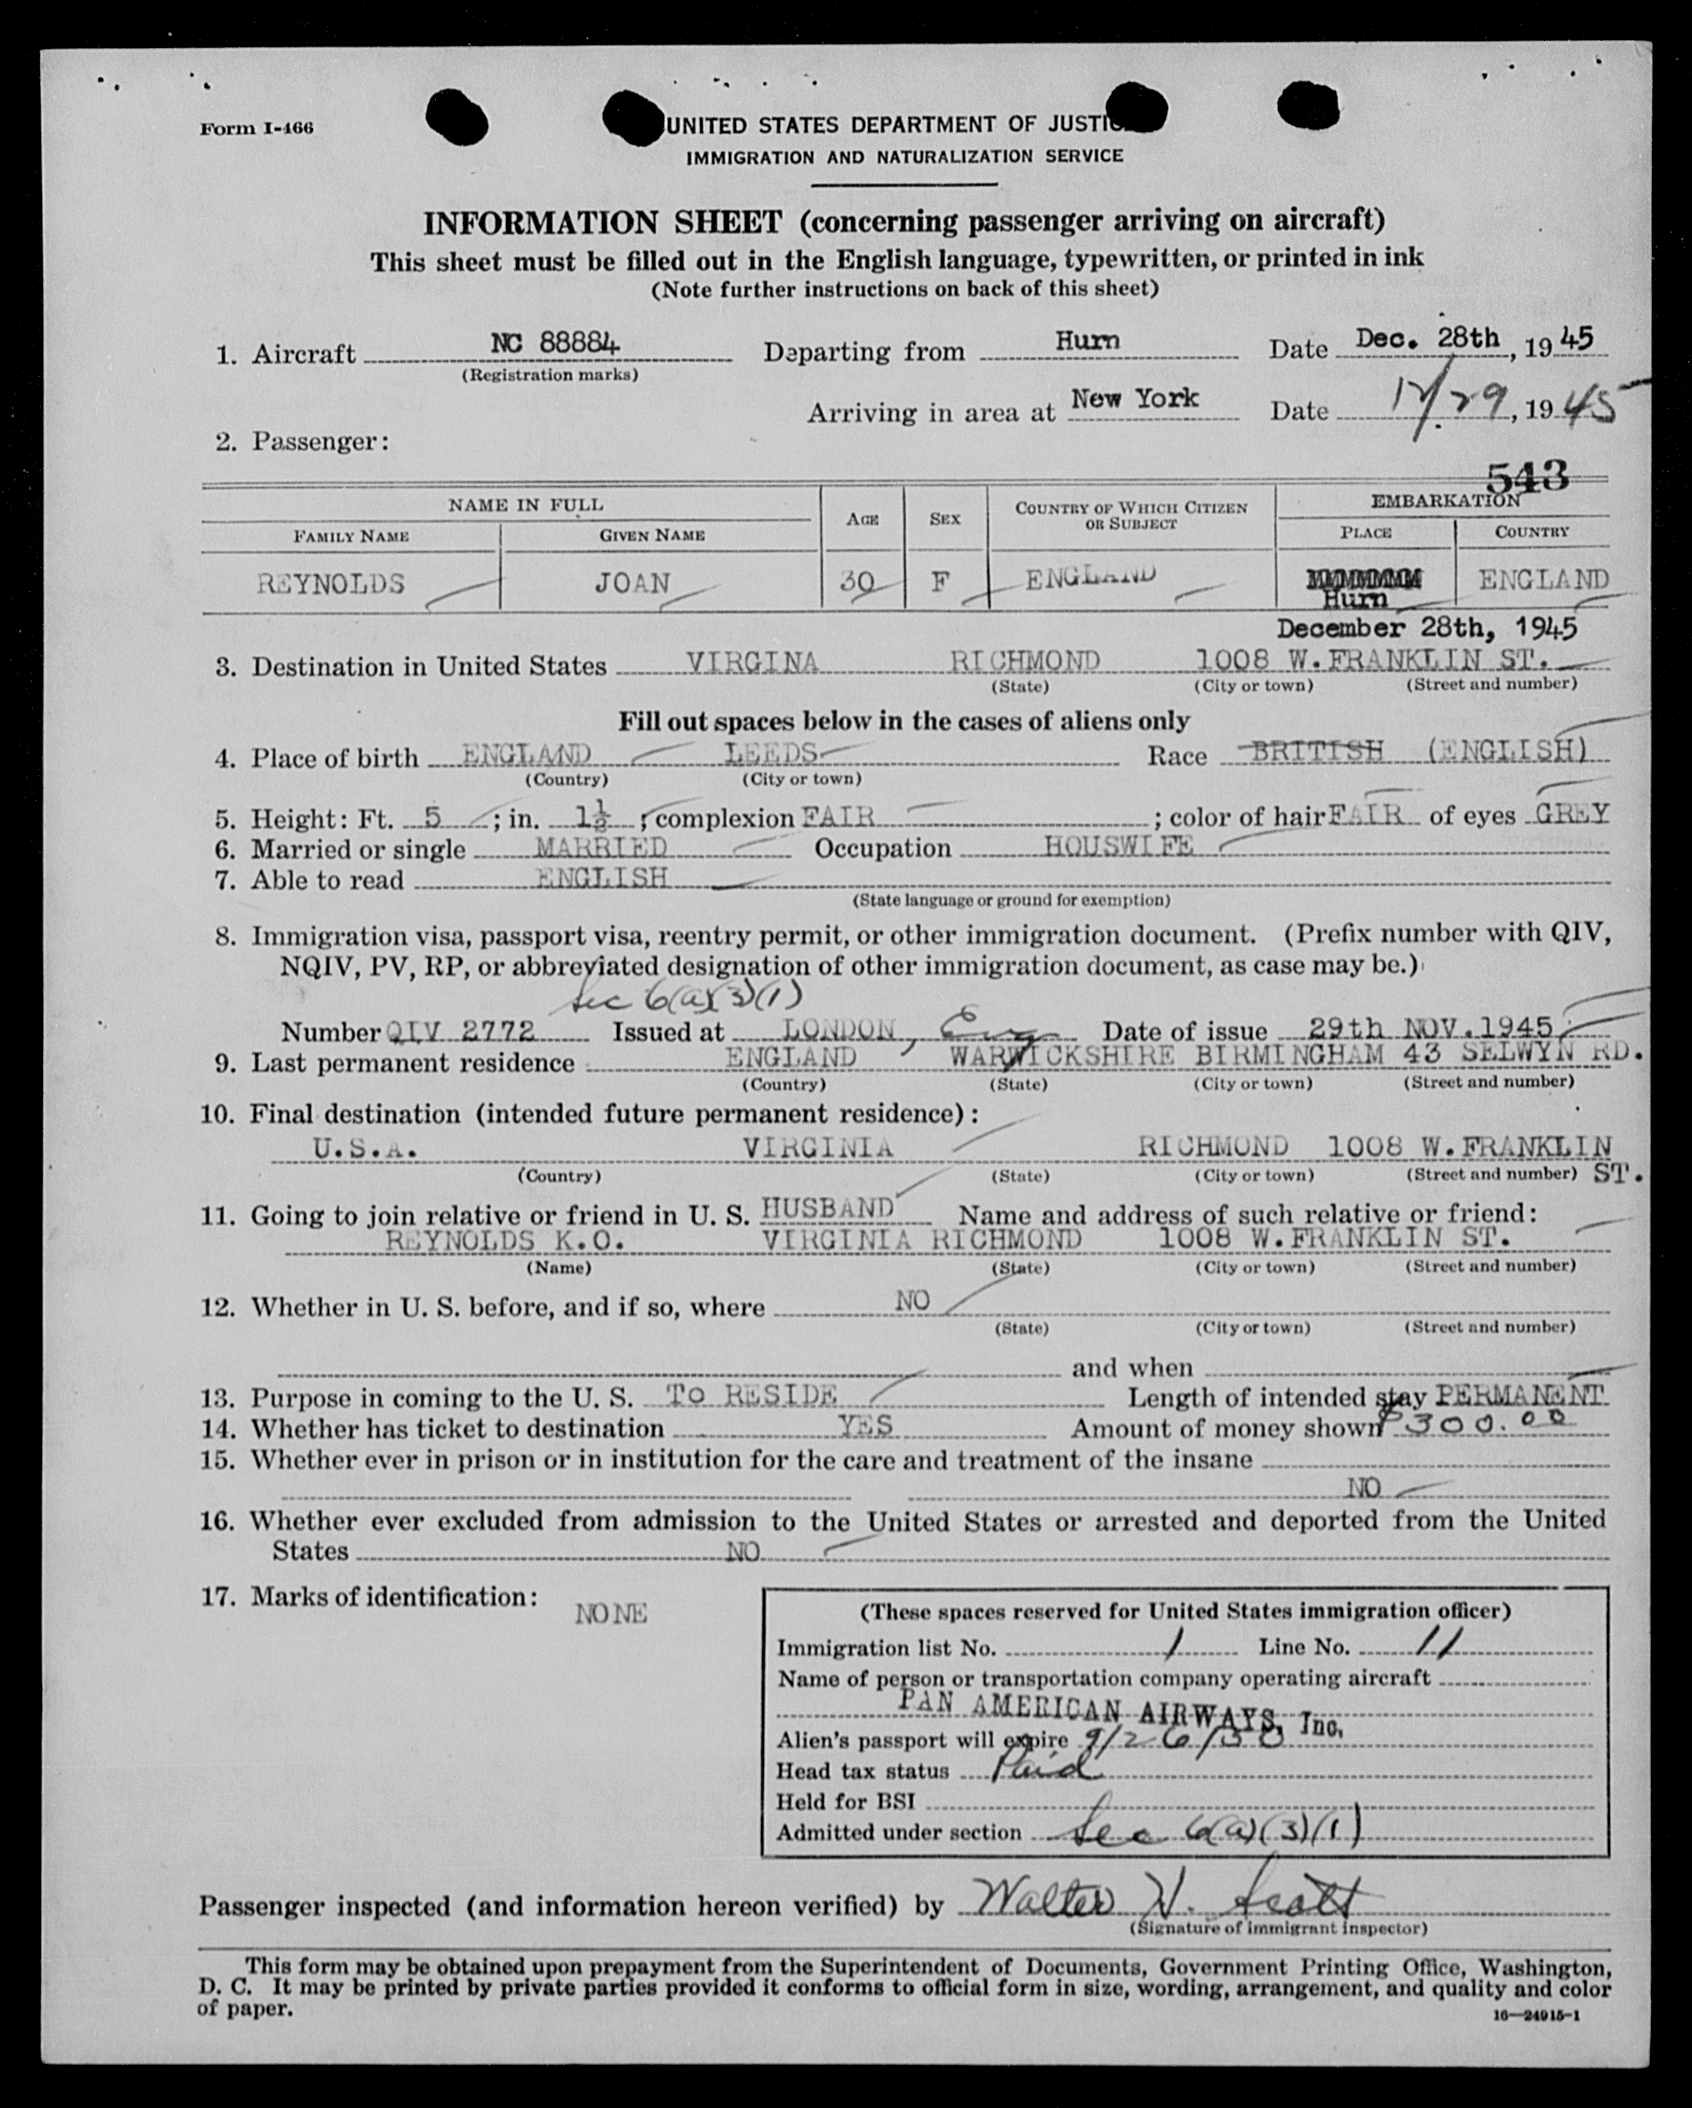 Form I-466
UNITED STATES DEPARTMENT OF JUSTIC
IMMIGRATION AND NATURALIZATION SERVICE
INFORMATION SHEET (concerning passenger arriving on aircraft)
This sheet must be filled out in the English language, typewritten, or printed in ink
(Note further instructions on back of this sheet)
1. Aircraft NC 88884 Departing from Hurn Date Dec. 28th, 1945
(Registration marks)
Arriving in area at New York Date 12/29, 1945
2. Passenger:
543
NAME IN FULL AGE SEX COUNTRY OF WHICH CITIZEN OR SUBJECT EMBARKATION
FAMILY NAME GIVEN NAME PLACE COUNTRY
REYNOLDS JOAN 30 F ENGLAND ENGLAND
Hurn
December 28th, 1945
3. Destination in United States VIRGINA RICHMOND 1008 W. FRANKLIN ST.
(State) (City or town) (Street and number)
Fill out spaces below in the cases of aliens only
4. Place of birth ENGLAND LEEDS Race BRITISH (ENGLISH)
(Country) (City or town)
5. Height: Ft. 5 ; in. 1½ ; complexion FAIR ; color of hair FAIR of eyes GREY
6. Married or single MARRIED Occupation HOUSWIFE
7. Able to read ENGLISH
(State language or ground for exemption)
8. Immigration visa, passport visa, reentry permit, or other immigration document. (Prefix number with QIV,
NQIV, PV, RP, or abbreviated designation of other immigration document, as case may be.)
Sec 6(a)(3)(1)
Number QIV 2772 Issued at LONDON, Eng Date of issue 29th NOV. 1945
9. Last permanent residence ENGLAND WARWICKSHIRE BIRMINGHAM 43 SELWYN RD.
(Country) (State) (City or town) (Street and number)
10. Final destination (intended future permanent residence):
U.S.A. VIRGINIA RICHMOND 1008 W. FRANKLIN
(Country) (State) (City or town) (Street and number) ST.
11. Going to join relative or friend in U. S. HUSBAND Name and address of such relative or friend:
REYNOLDS K.O. VIRGINIA RICHMOND 1008 W. FRANKLIN ST.
(Name) (State) (City or town) (Street and number)
12. Whether in U. S. before, and if so, where NO
(State) (City or town) (Street and number)
and when
13. Purpose in coming to the U. S. TO RESIDE Length of intended stay PERMANENT
14. Whether has ticket to destination YES Amount of money shown $300.00
15. Whether ever in prison or in institution for the care and treatment of the insane
NO
16. Whether ever excluded from admission to the United States or arrested and deported from the United
States NO
17. Marks of identification: NONE
(These spaces reserved for United States immigration officer)
Immigration list No. 1 Line No. 11
Name of person or transportation company operating aircraft
PAN AMERICAN AIRWAYS, Inc.
Alien's passport will expire 9/26/50
Head tax status Paid
Held for BSI
Admitted under section Sec 6(a)(3)(1)
Passenger inspected (and information hereon verified) by Walter H. Scott
(Signature of immigrant inspector)
This form may be obtained upon prepayment from the Superintendent of Documents, Government Printing Office, Washington,
D. C. It may be printed by private parties provided it conforms to official form in size, wording, arrangement, and quality and color
of paper.
16—24915-1